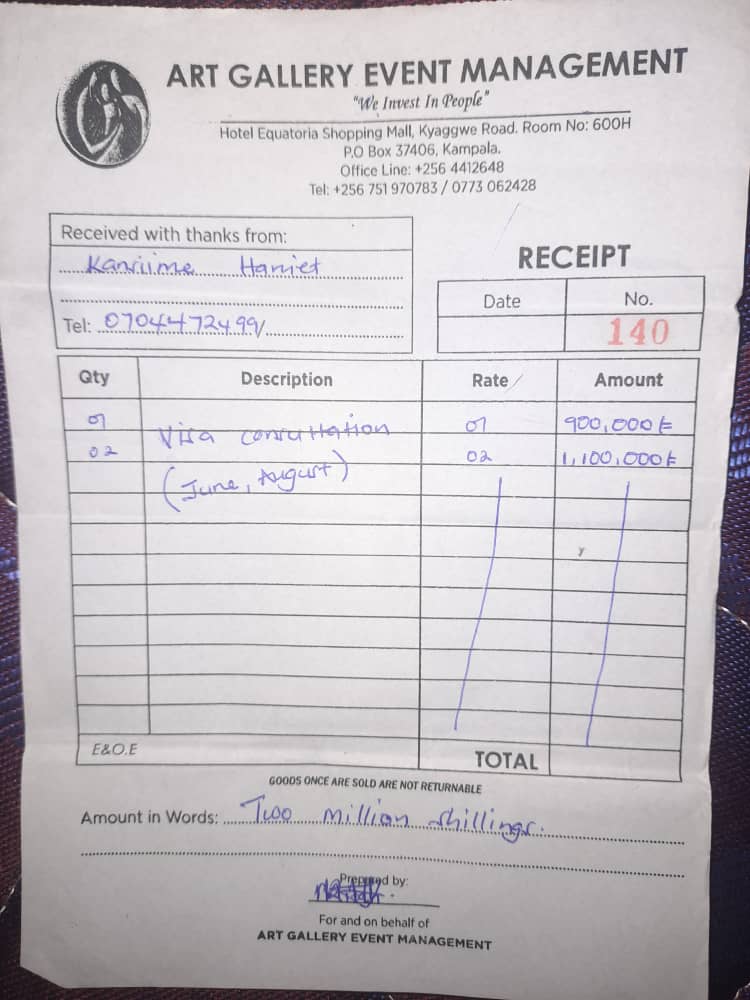 ART GALLERY EVENT MANAGEMENT
"We Invest In People"
Hotel Equatoria Shopping Mall, Kyaggwe Road. Room No: 600H
P.O Box 37406, Kampala.
Office Line: +256 4412648
Tel: +256 751 970783 / 0773 062428
Received with thanks from:
Kanriime Harriet
Tel: 0704472499/
RECEIPT
Date No.
140
Qty Description Rate Amount
01 Visa consultation 01 900,000/=
02 (June, August) 02 1,100,000/=
E&O.E TOTAL
GOODS ONCE ARE SOLD ARE NOT RETURNABLE
Amount in Words: Two million shillings.
Prepared by:
For and on behalf of
ART GALLERY EVENT MANAGEMENT